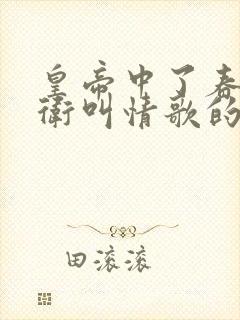 皇帝中了春
衛叫情歌的
田滚滚